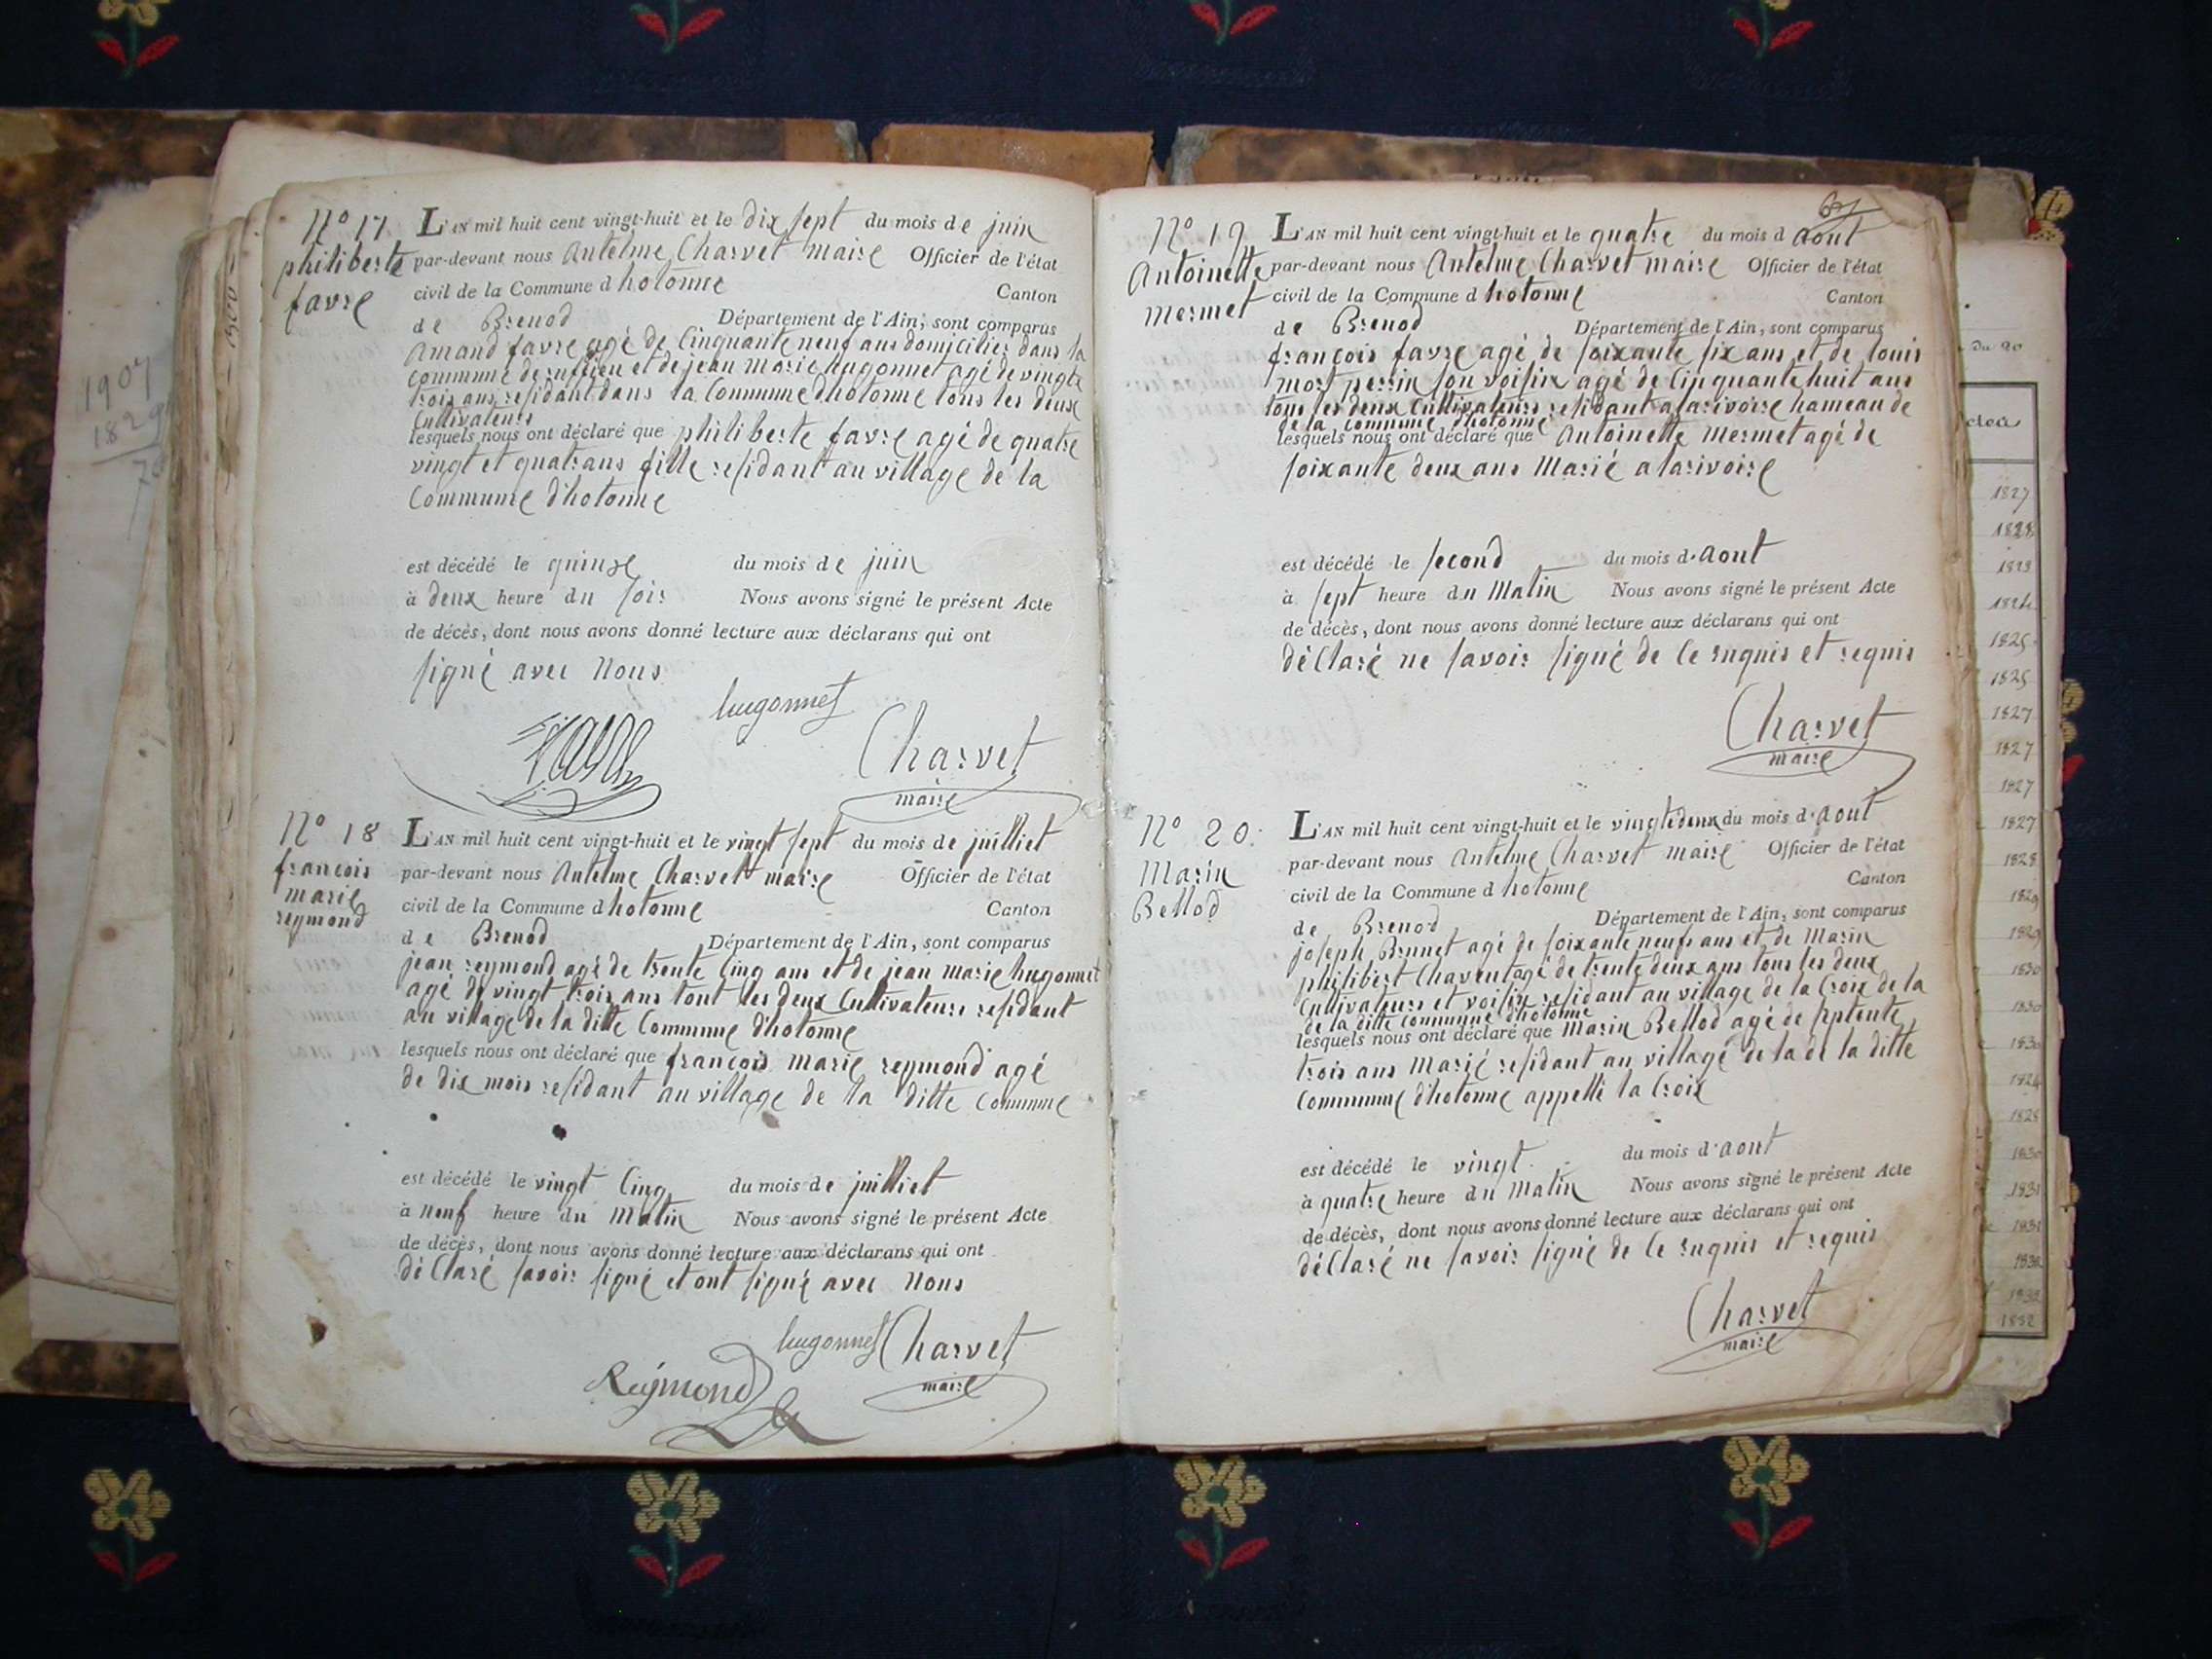 1907
1829
N° 17
philiberte
favre
L'AN mil huit cent vingt-huit et le dix sept du mois de juin
par-devant nous Antelme Charvet maire Officier de l'état
civil de la Commune d hotonne Canton
de Brenod Département de l'Ain, sont comparus
Amand favre agé de Cinquante neuf ans domicilier dans la
commune de ruffieu et de jean marie hugonnet agé de vingt
trois ans residant dans la Commune d'hotonne tous les deux
Cultivateurs
lesquels nous ont déclaré que philiberte favre agé de quatre
vingt et quatrans fille residant au village de la
Commune d'hotonne
est décédé le quinze du mois de juin
à deux heure du soir Nous avons signé le présent Acte
de décès, dont nous avons donné lecture aux déclarans qui ont
signé avec Nous
hugonnet
Charvet
maire
N° 18
francois
marie
reymond
L'AN mil huit cent vingt-huit et le vingt sept du mois de juilliet
par-devant nous Antelme Charvet maire Officier de l'état
civil de la Commune d hotonne Canton
de Brenod Département de l'Ain, sont comparus
jean reymond agé de trente Cinq ans et de jean marie hugonnet
agé de vingt trois ans tout les deux Cultivateurs residant
au village de la ditte Commune d'hotonne
lesquels nous ont déclaré que francois marie reymond agé
de dix mois residant au village de la ditte Commune
est décédé le vingt Cinq du mois de juilliet
à neuf heure du Matin Nous avons signé le présent Acte
de décès, dont nous avons donné lecture aux déclarans qui ont
déClaré savoir signé et ont signé avec Nous
hugonnet Charvet
maire
Reymond
N° 19
Antoinette
Mermet
L'AN mil huit cent vingt-huit et le quatre du mois d aout
par-devant nous Antelme Charvet maire Officier de l'état
civil de la Commune d hotonne Canton
de Brenod Département de l'Ain, sont comparus
francois favre agé de soixante six ans et de louis
mort perrin son voisin agé de Cinquante huit ans
tous les deux Cultivateurs residant a larivoire hameau de
de la commune d'hotonne
lesquels nous ont déclaré que Antoinette Mermet agé de
soixante deux ans Marié a larivoire
est décédé le second du mois d'Aout
à sept heure du Matin Nous avons signé le présent Acte
de décès, dont nous avons donné lecture aux déclarans qui ont
déClaré ne savoir signé de Ce enquis et requis
Charvet
maire
N° 20.
Marin
Bellod
L'AN mil huit cent vingt-huit et le vingt deux du mois d'Aout
par-devant nous Antelme Charvet maire Officier de l'état
civil de la Commune d hotonne Canton
de Brenod Département de l'Ain, sont comparus
joseph Brunet agé de soixante neufs ans et de Marin
philibert Chavent agé de trente deux ans tous les deux
Cultivateurs et voisin residant au village de la Croix de la
de la ditte commune d'hotonne
lesquels nous ont déclaré que Marin Bellod agé de septente
trois ans Marié residant au village de la de la ditte
Commune d'hotonne appellé la Croix
est décédé le vingt du mois d'Aout
à quatre heure du Matin Nous avons signé le présent Acte
de décès, dont nous avons donné lecture aux déclarans qui ont
déClaré ne savoir signé de Ce enquis et requis
Charvet
maire
du 20
1827
1828
1825
1825
1827
1827
1827
1827
1828
1829
1830
1830
1830
1831
1831
1832